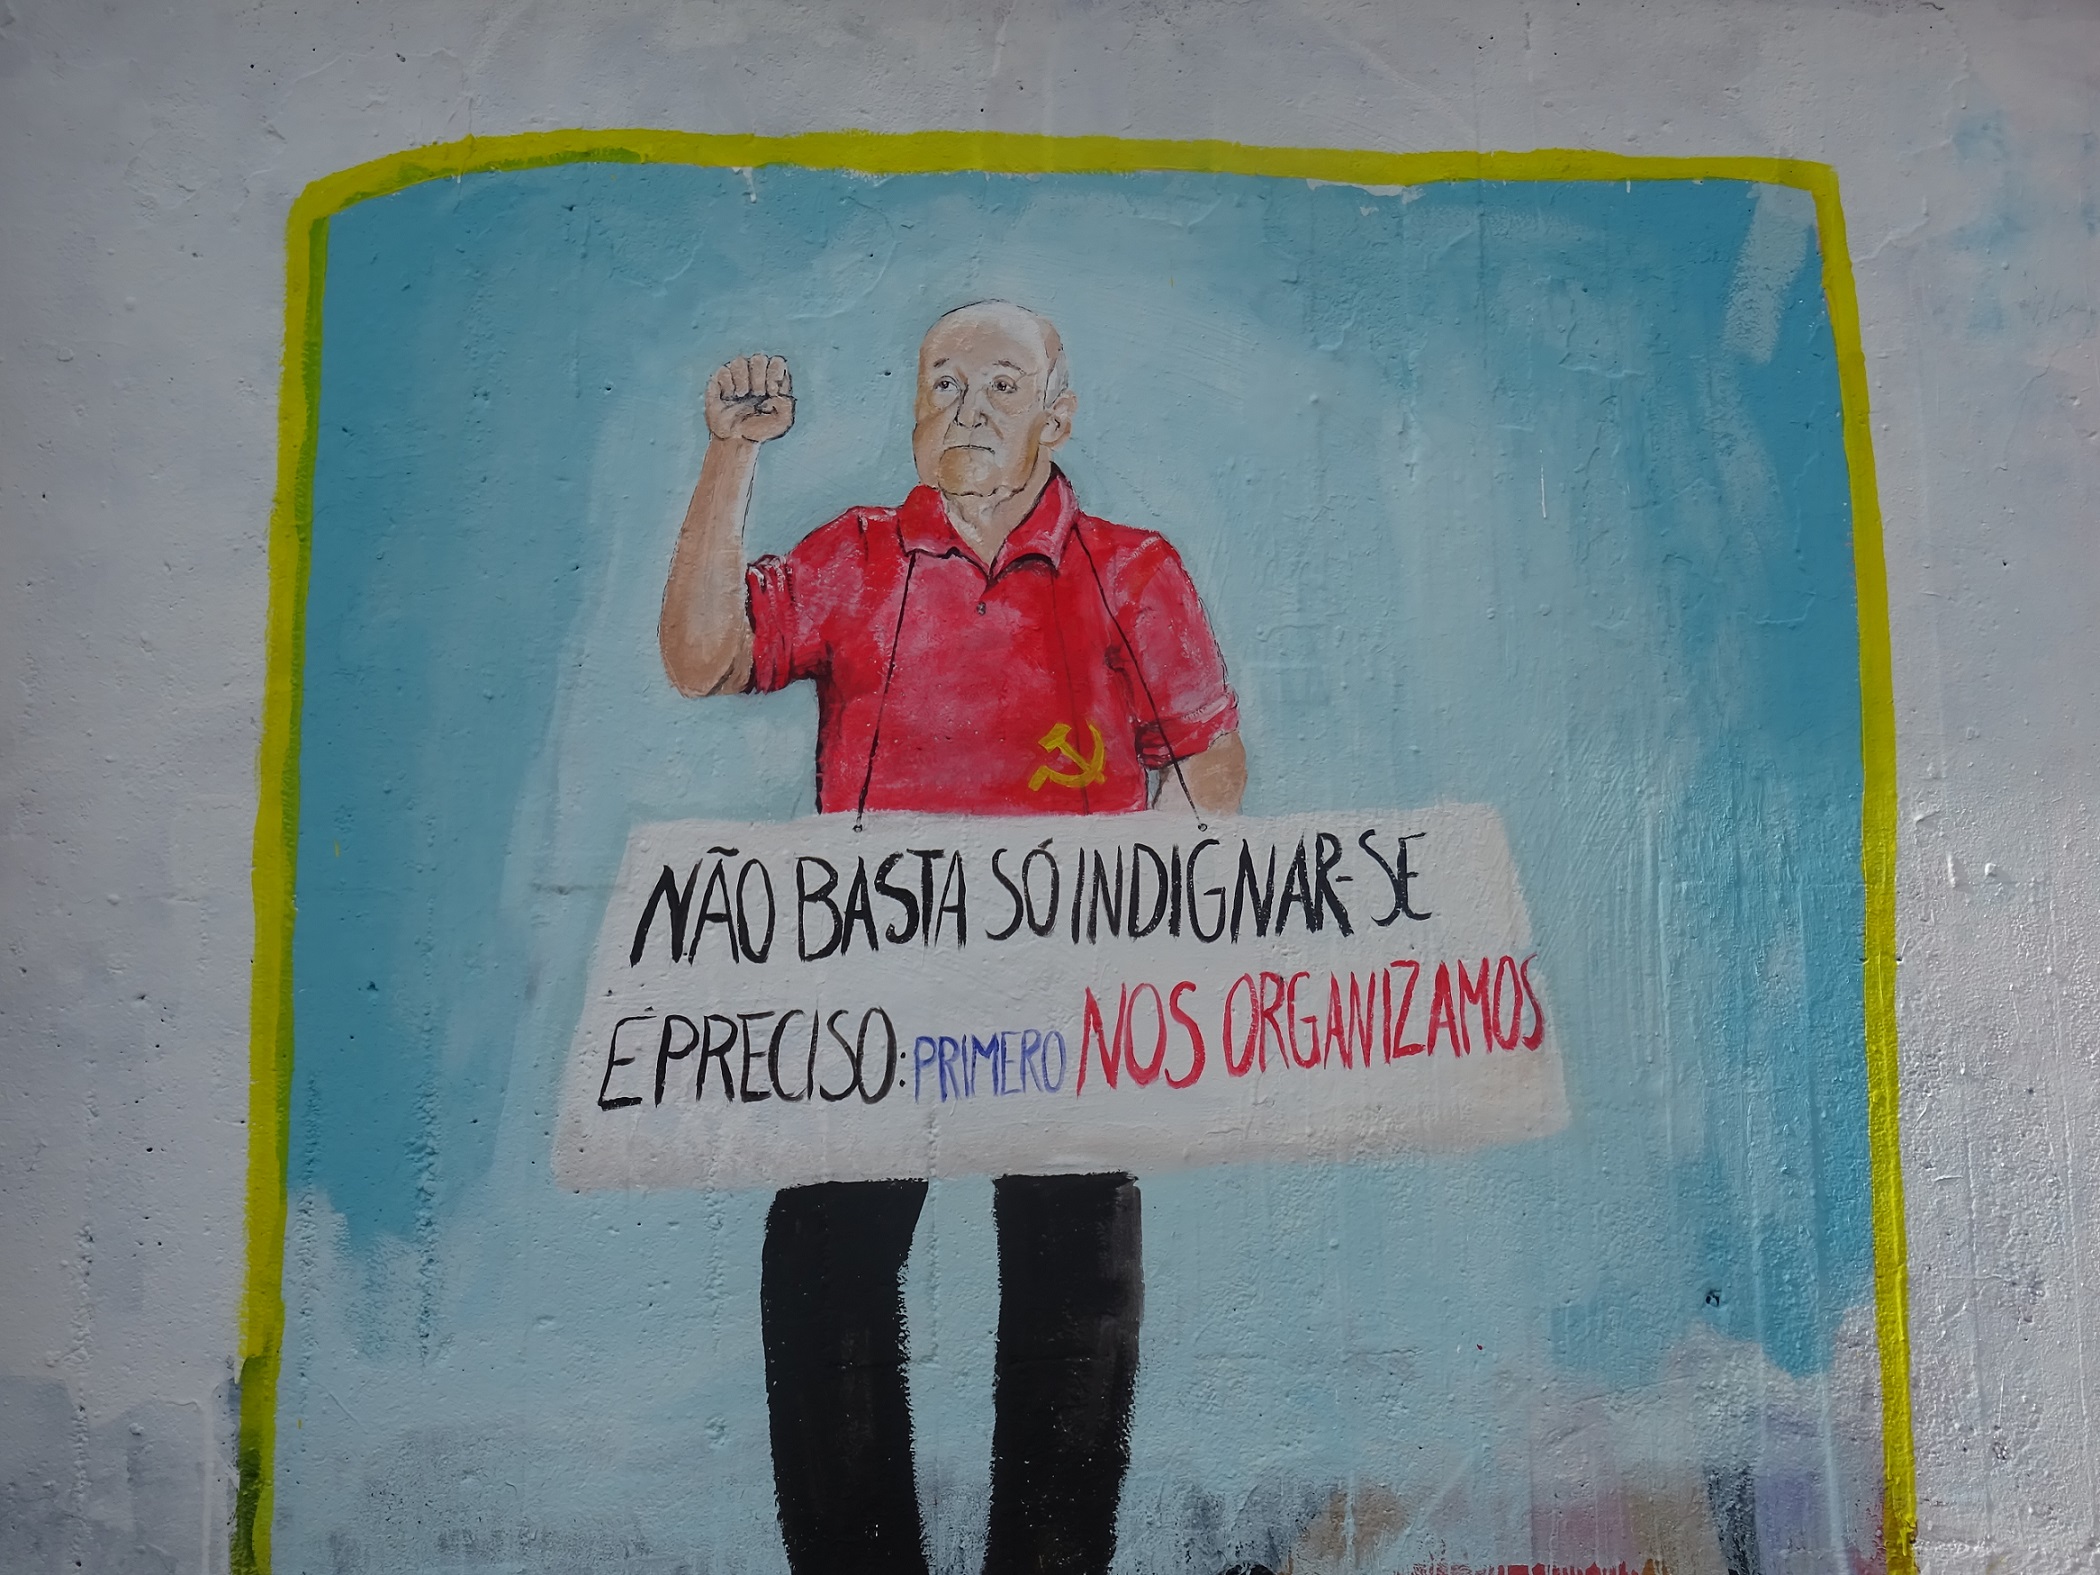 NÃO BASTA SÓ INDIGNAR-SE
É PRECISO: PRIMERO NOS ORGANIZAMOS